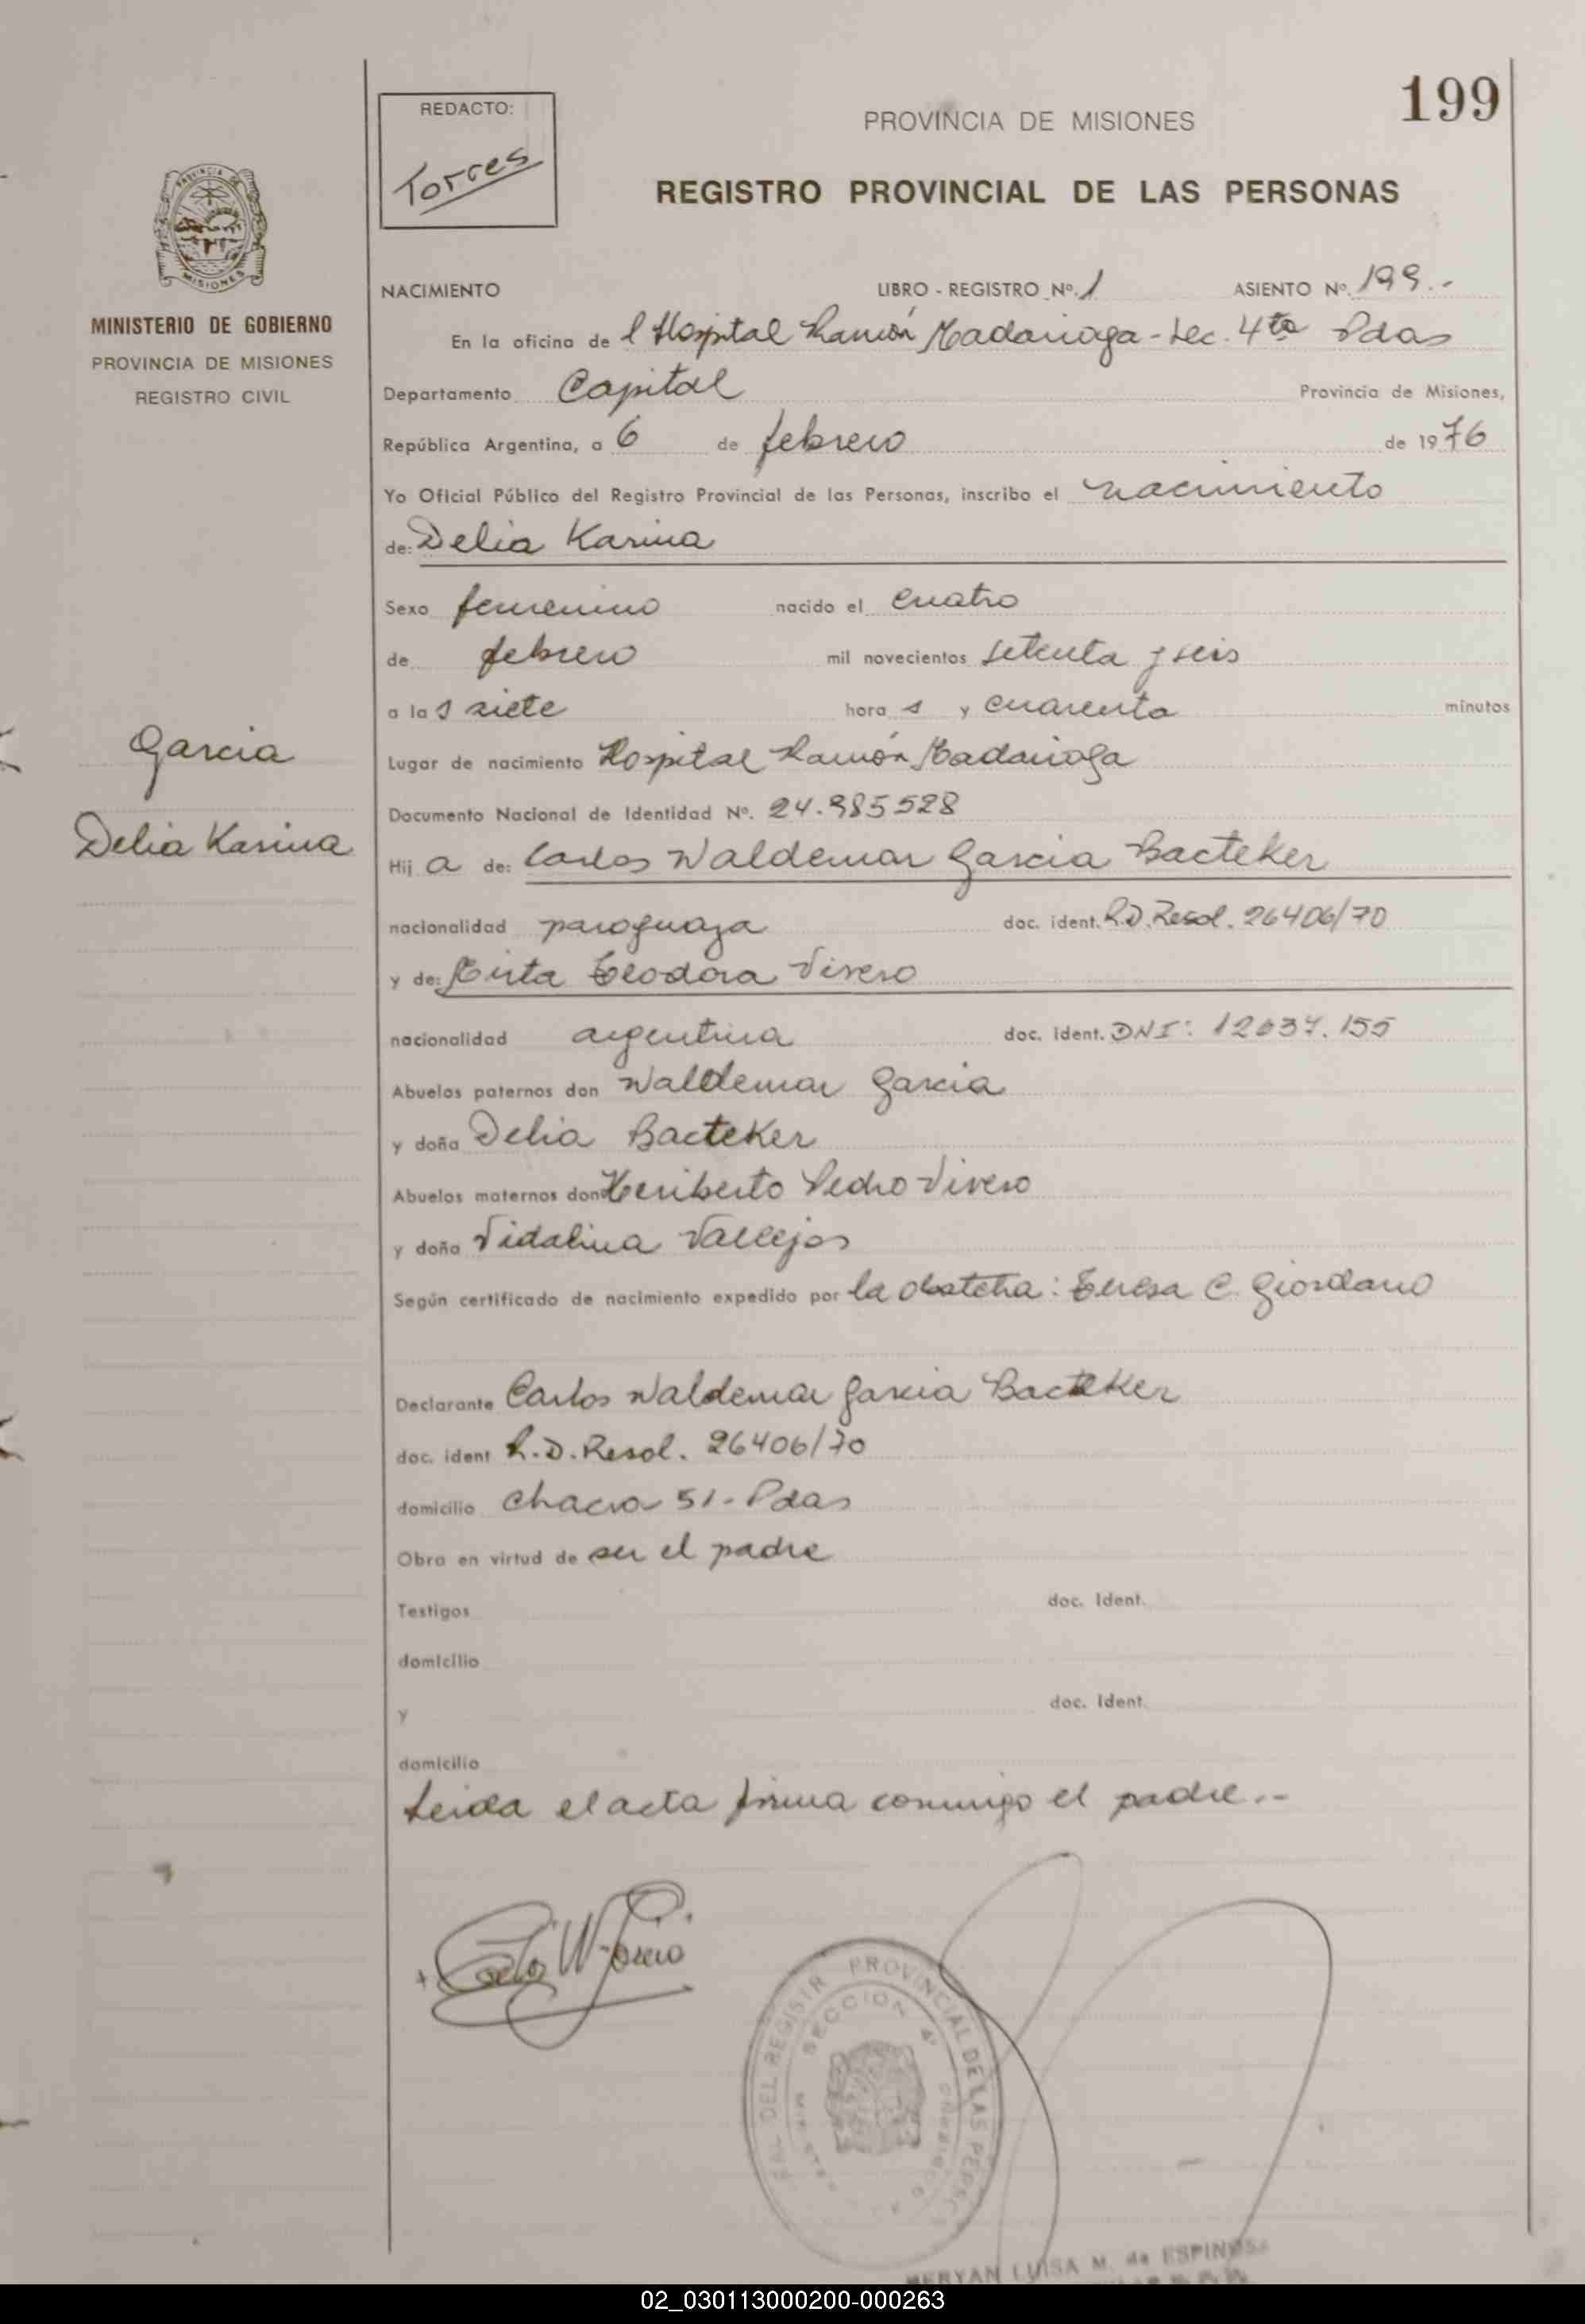 199
REDACTO:
Torres
PROVINCIA DE MISIONES
REGISTRO PROVINCIAL DE LAS PERSONAS
PROVINCIA DE
MISIONES
MINISTERIO DE GOBIERNO
PROVINCIA DE MISIONES
REGISTRO CIVIL
NACIMIENTO LIBRO - REGISTRO Nº. 1 ASIENTO Nº. 199.-
En la oficina de l Hospital Ramón Madariaga - Sec. 4ta Pdas
Departamento Capital Provincia de Misiones,
República Argentina, a 6 de febrero de 1976
Yo Oficial Público del Registro Provincial de las Personas, inscribo el nacimiento
de: Delia Karina
Sexo femenino nacido el cuatro
de febrero mil novecientos setenta y seis
a las siete horas y cuarenta minutos
Garcia
Lugar de nacimiento Hospital Ramón Madariaga
Documento Nacional de Identidad Nº. 24.985528
Delia Karina
Hija de: Carlos Waldemar Garcia Bacteker
nacionalidad paraguaya doc. ident. R.D. Resol. 26406/70
y de: Mirta Teodora Vivero
nacionalidad argentina doc. ident. DNI: 12037.155
Abuelos paternos don Waldemar Garcia
y doña Delia Bacteker
Abuelos maternos don Heriberto Pedro Vivero
y doña Vidalina Vallejos
Según certificado de nacimiento expedido por la obstetra: Teresa C. Giordano
Declarante Carlos Waldemar Garcia Bacteker
doc. ident R.D. Resol. 26406/70
domicilio Chacra 51 - Pdas
Obra en virtud de ser el padre
Testigos doc. Ident.
domicilio
y doc. Ident.
domicilio
Leida el acta firma conmigo el padre.-
Carlos W. Garcia
DEL REGISTR PROVINCIAL DE LAS PERSO
SECCION 4ª
LUISA M. de ESPINOSA
02_030113000200-000263